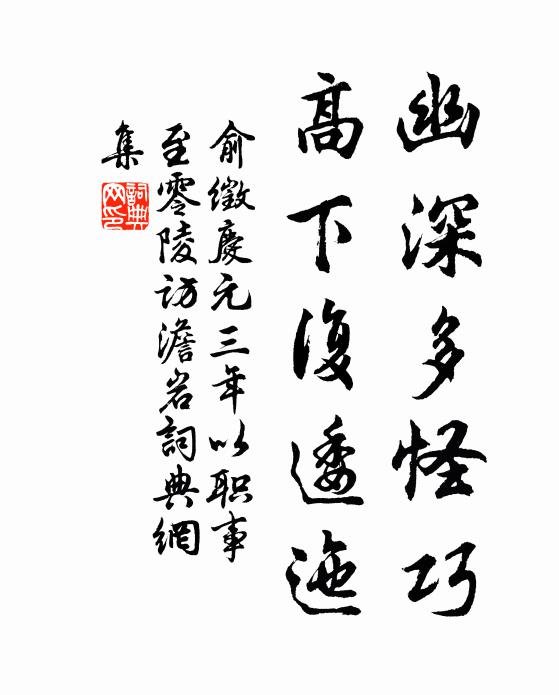 幽深多怪巧
高下復逶迤
俞徵慶元三年以职事
至零陵访澹岩詞典網
集
詞典
网印